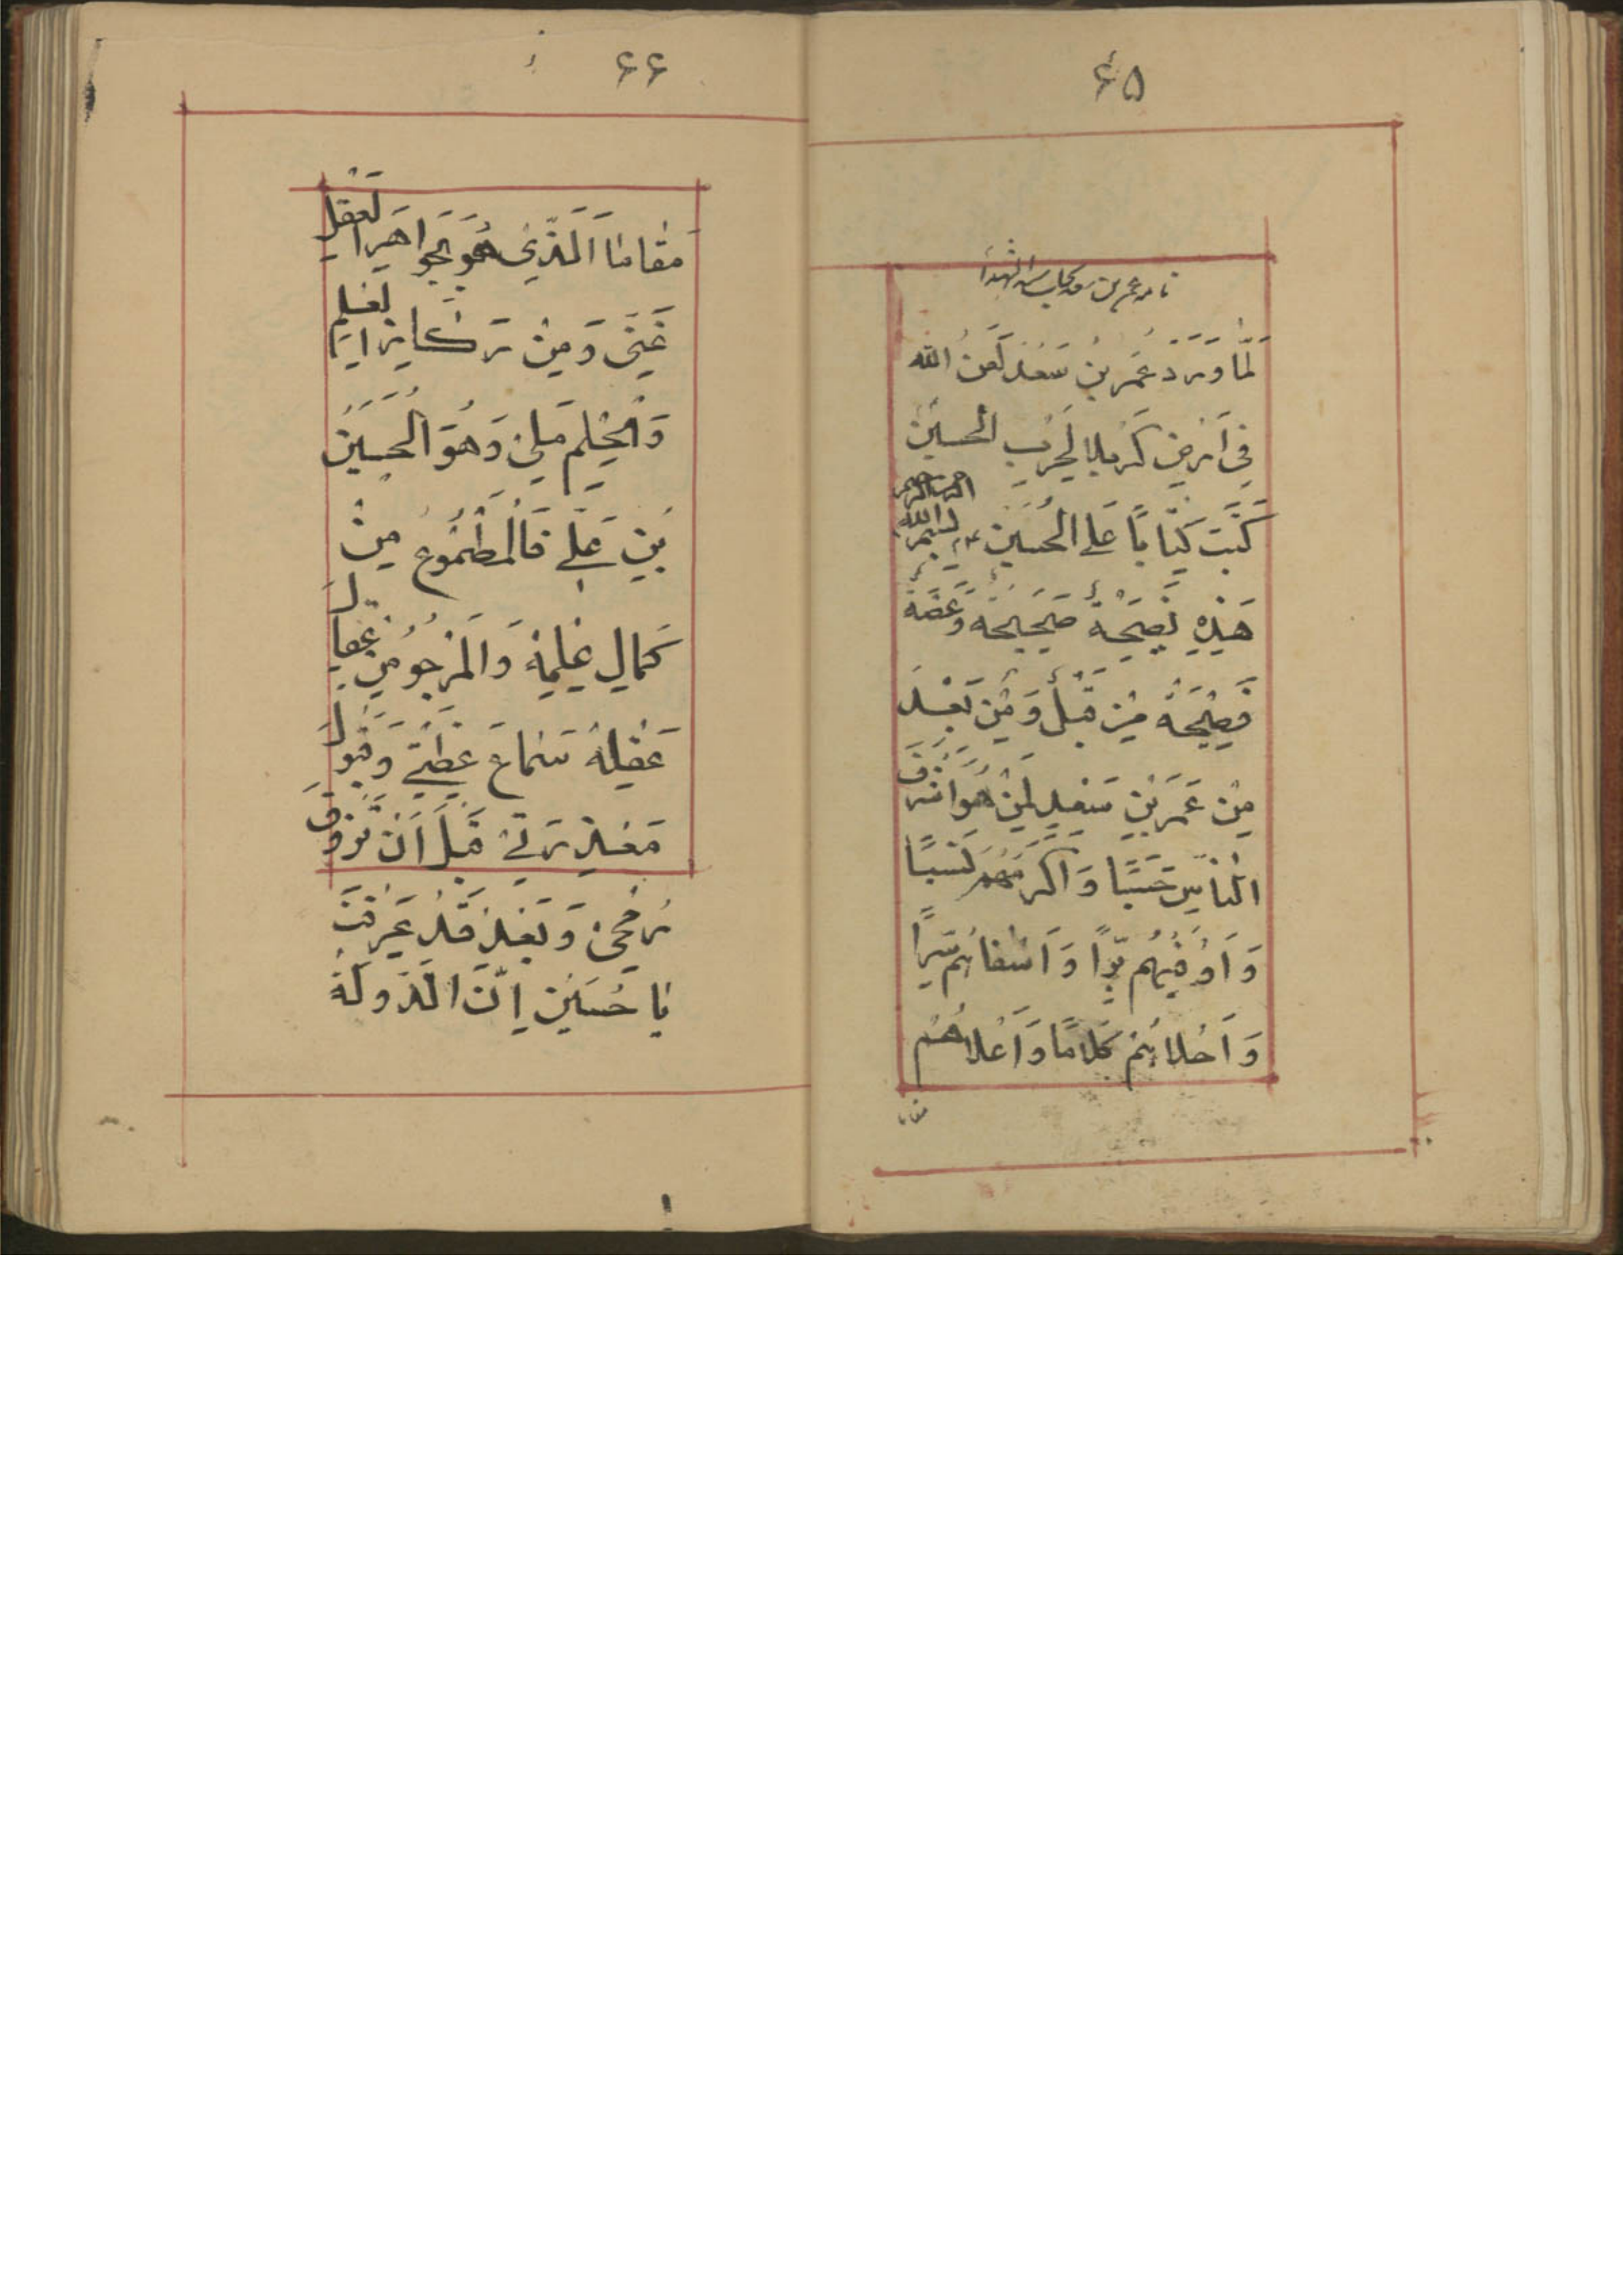 ۶۵
نامه عمر بن سعد بجناب سید الشهدا
لَمّا وَرَدَ عُمَر بنُ سَعَد لَعَنُ الله
فِی اَرضِ کَربلا لِحَربِ الحسین
کَتَبَ کِتاباً عَلی الحُسَین ع بسم الله الرحمن الرحیم
هَذِهِ نَصیحَةٌ صَحیحَةٌ وَعَظَةٌ
فَصیحَةٌ مِن قَبلُ وَ مِن بَعْدُ
مِن عُمَر بنِ سَعدٍ لِمَن هُوَ اشرَفَ
الناسِ حَسَباً وَ اکرَمَهُم نَسَباً
وَ اَوفیهُم بِرّاً وَ اَشفاهُم سِرّاً
وَ اَحلاهُم کَلاماً وَ اَعلاهُم
مقا
۶۶
مَقاماً اَلَّذِی هُوَ بِجَواهِرِ العَقلِ
غَنِی وَ مِن رَشایِرِ العِلمِ
وَ الحِلمِ مَلِی وَ هُوَ الحُسَینُ
بنِ عَلیّ فَالمَطمُوعُ مِن
کَمالِ عِلمِهٖ وَ المَرجُو مِن عِقالِ
عَقلِهٖ سَماعَ عِظَتی وَ قَبُولَ
مَعذِرَتی قَبلَ اَن تَذُوقَ
رُمحی وَ بَعدُ قَد عَرَفتَ
یا حُسَین اِنَّ الدَّولَةَ